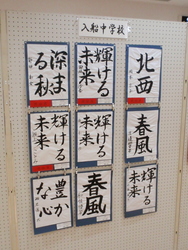 入船中学校
深まる秋
輝ける未来
北西
輝ける未来
輝ける未来
春風
豊かな心
春風
輝ける未来